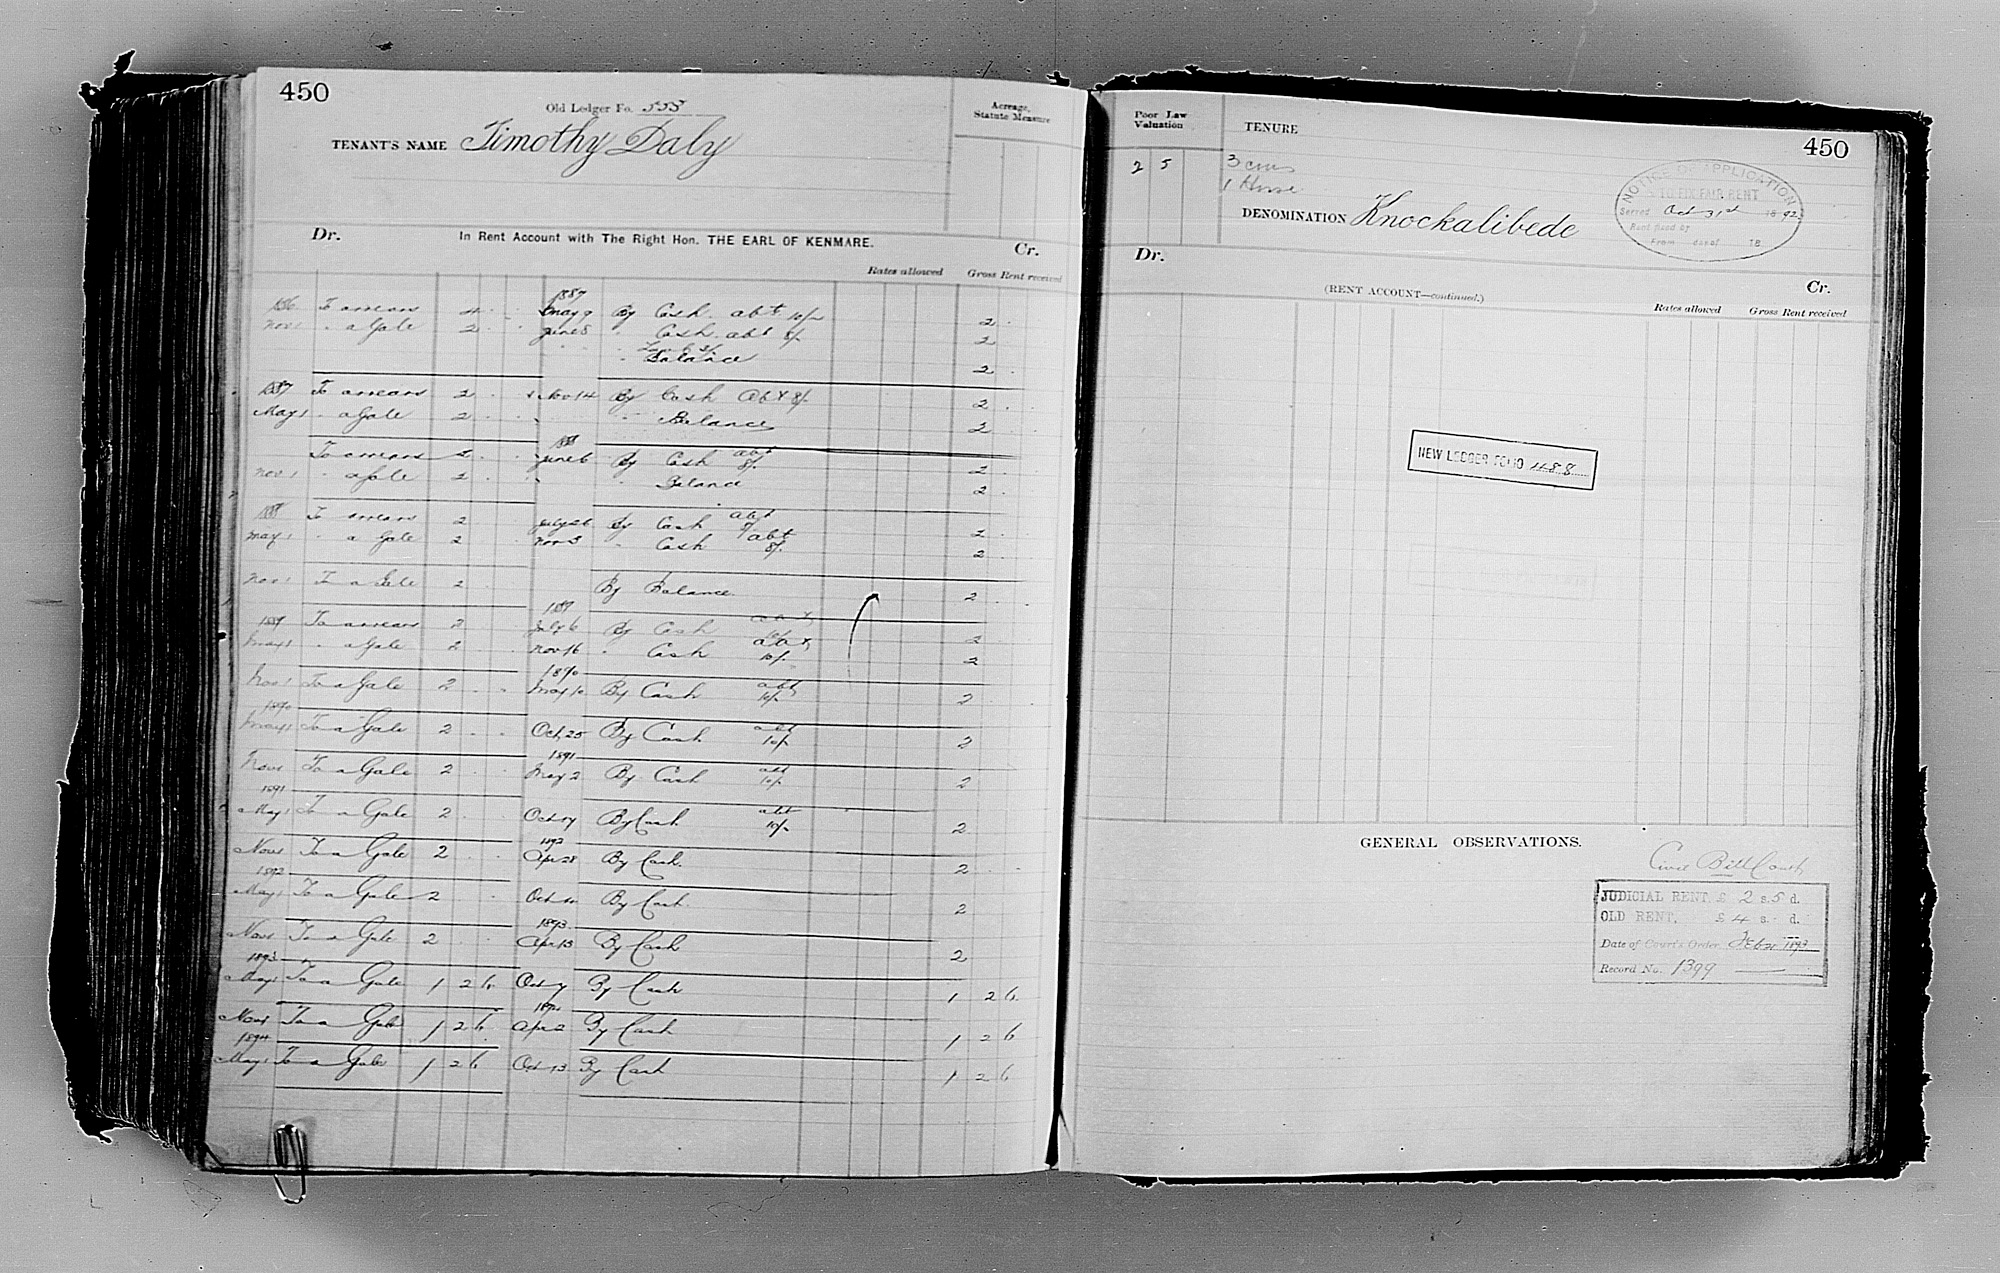 450
Old Ledger Fo. 555
TENANT'S NAME Timothy Daly
Acreage, Statute Measure
Dr. In Rent Account with The Right Hon. THE EARL OF KENMARE. Cr.
Rates allowed Gross Rent received
1887
To arrears 4 May 9 By Cash abt 10/- 2
Nov 1 " a Gale 2 June 8 Cash abt 8/- 2
" Balance 2
1887 To arrears 2 Nov 14 By Cash abt 8/- 2
May 1 " a Gale 2 " Balance 2
1888
To arrears 2 June 6 By Cash abt 8/- 2
Nov 1 " a Gale 2 " Balance 2
1888 To arrears 2 July 26 By Cash abt 2
May 1 " a Gale 2 Nov 3 " Cash abt 8/- 2
Nov 1 To a Gale 2 By Balance 2
1889
1889 To arrears 2 July 6 By Cash 2
May 1 " a Gale 2 Nov 16 " Cash abt 10/- 2
1890
Nov 1 To a Gale 2 May 10 By Cash abt 10/- 2
1890
May 1 To a Gale 2 Oct 25 By Cash abt 10/- 2
1891
Nov 1 To a Gale 2 May 2 By Cash abt 10/- 2
1891
May 1 To a Gale 2 Oct 17 By Cash abt 10/- 2
1892
Nov 1 To a Gale 2 Apr 28 By Cash. 2
1892
May 1 To a Gale 2 Oct By Cash. 2
1893
Nov 1 To a Gale 2 Apr 13 By Cash 2
1893
May 1 To a Gale 1 2 6 Oct 7 By Cash 1 2 6
1894
Nov 1 To a Gale 1 2 6 Apr 2 By Cash 1 2 6
1894
May 1 To a Gale 1 2 6 Oct 13 By Cash 1 2 6
Poor Law Valuation
2 5
TENURE
450
3 cows
1 Horse
DENOMINATION Knockalibede
NOTICE OF APPLICATION
TO FIX FAIR RENT
Served Oct 31st 1892
Rent fixed by
From day of 18
Dr. Cr.
(RENT ACCOUNT—continued.)
Rates allowed Gross Rent received
NEW LEDGER FOLIO 1188
GENERAL OBSERVATIONS.
Civil Bill Court
JUDICIAL RENT, £ 2 s. 5 d.
OLD RENT, £ 4 s. d.
Date of Court's Order 1893
Record No. 1399